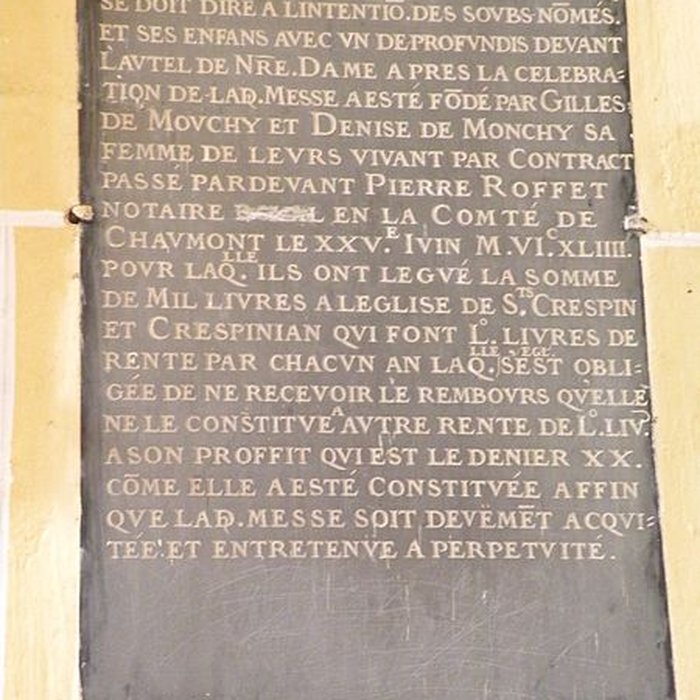 SE DOIT DIRE A LINTENTIŌ. DES SOVBS-NŌMÉS.
ET SES ENFANS AVEC VN DEPROFVNDIS DEVANT
LAVTEL DE NR̄E. DAME APRES LA CELEBRA-
TION DE LAD. MESSE A ESTÉ FŌDÉ PAR GILLES
DE MOVCHY ET DENISE DE MONCHY SA
FEMME DE LEVRS VIVANT PAR CONTRACT
PASSÉ PARDEVANT PIERRE ROFFET
NOTAIRE EN LA COMTÉ DE
CHAVMONT LE XXV.E IVIN M.VI.C XLIIII.
POVR LAQ.LLE ILS ONT LEGVÉ LA SOMME
DE MIL LIVRES A LEGLISE DE S.TS CRESPIN
ET CRESPINIAN QVI FONT L.o LIVRES DE
RENTE PAR CHACVN AN LAQ.LLE SEST EGL. OBLI-
GÉE DE NE RECEVOIR LE REMBOVRS QVELLE
NE LE CONSTITVE A AVTRE RENTE DE L.o LIV.
A SON PROFFIT QVI EST LE DENIER XX.
CŌME ELLE A ESTÉ CONSTITVÉE AFFIN
QVE LAD. MESSE SOIT DEVËMĒT ACQVI-
TÉE. ET ENTRETENVE A PERPETVITÉ.